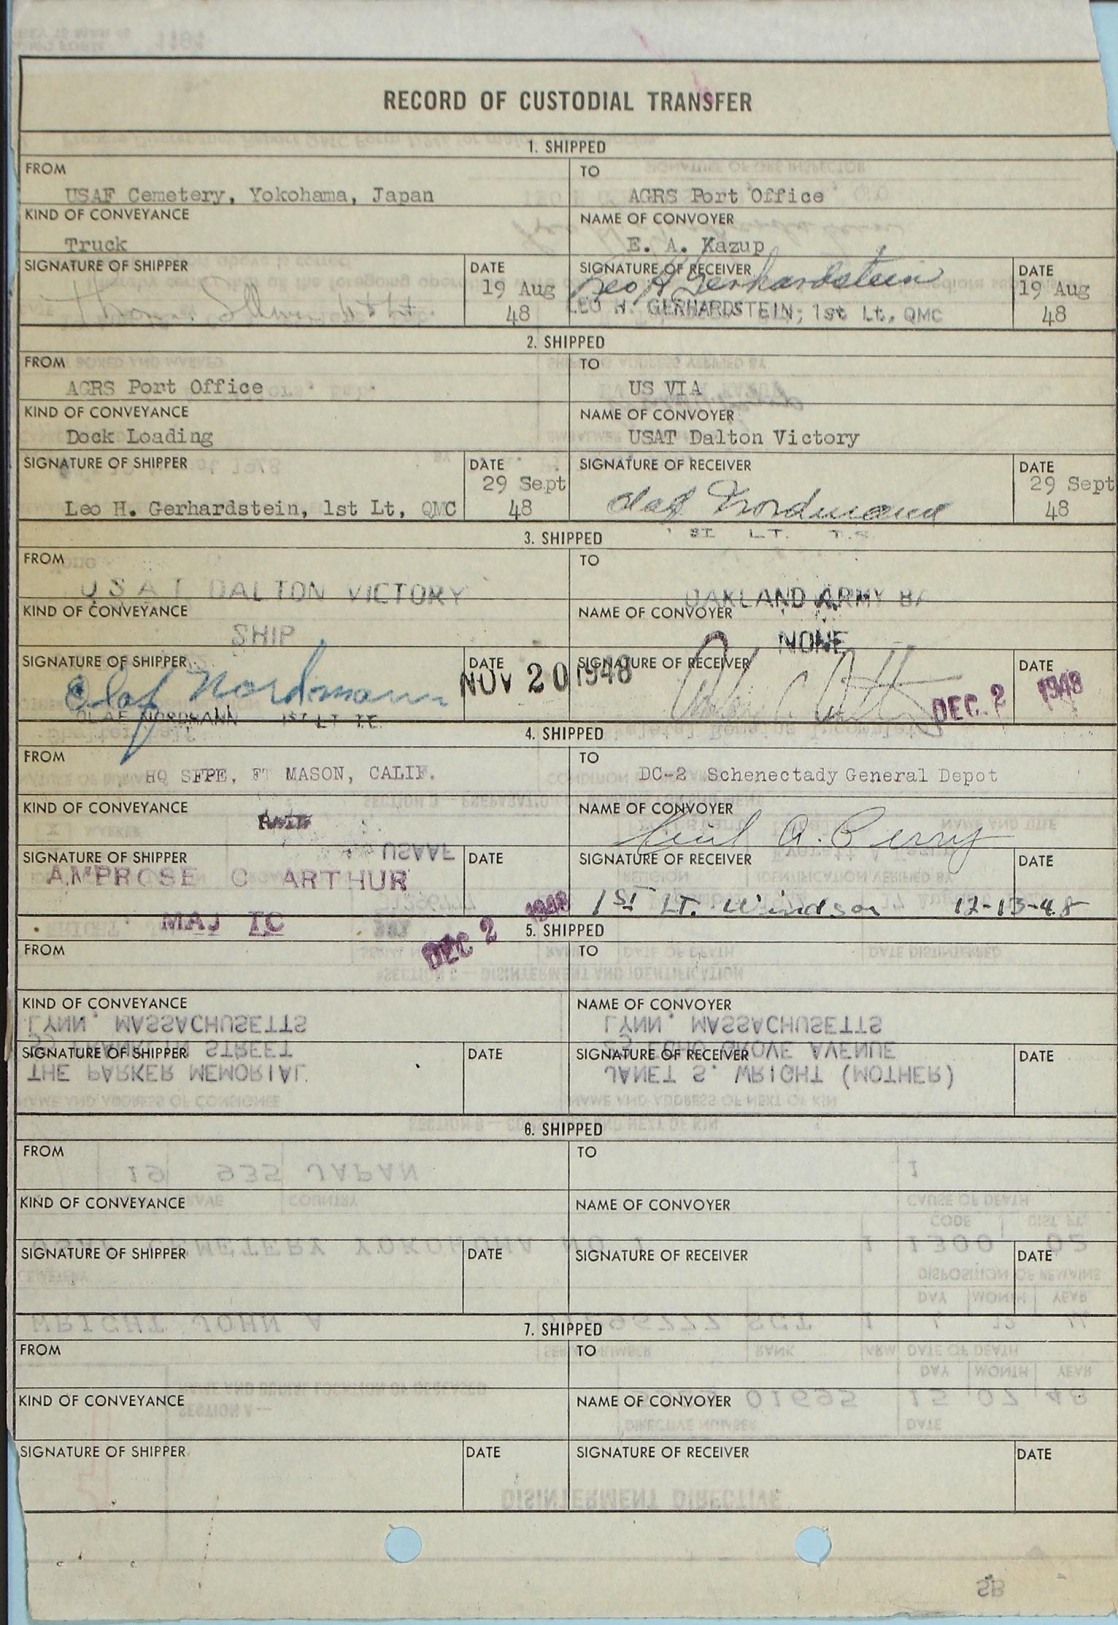 RECORD OF CUSTODIAL TRANSFER
1. SHIPPED
FROM
USAF Cemetery, Yokohama, Japan
TO
AGRS Port Office
KIND OF CONVEYANCE
Truck
NAME OF CONVOYER
E. A. Kazup
SIGNATURE OF SHIPPER
DATE
19 Aug
48
SIGNATURE OF RECEIVER
Leo H Gerhardstein
LEO H. GERHARDSTEIN, 1st Lt, QMC
DATE
19 Aug
48
2. SHIPPED
FROM
AGRS Port Office
TO
US VIA
KIND OF CONVEYANCE
Dock Loading
NAME OF CONVOYER
USAT Dalton Victory
SIGNATURE OF SHIPPER
Leo H. Gerhardstein, 1st Lt, QMC
DATE
29 Sept
48
SIGNATURE OF RECEIVER
Olaf Nordmann
DATE
29 Sept
48
3. SHIPPED
FROM
USAT DALTON VICTORY
TO
OAKLAND ARMY BA
KIND OF CONVEYANCE
SHIP
NAME OF CONVOYER
NONE
SIGNATURE OF SHIPPER
Olaf Nordmann
OLAF NORDMANN 1ST LT
DATE
NOV 20 1948
SIGNATURE OF RECEIVER
DATE
DEC. 2 1948
4. SHIPPED
FROM
HQ SFPE, FT MASON, CALIF.
TO
DC-2 Schenectady General Depot
KIND OF CONVEYANCE
NAME OF CONVOYER
Cecil A. Perry
SIGNATURE OF SHIPPER
AMBROSE C ARTHUR
MAJ TC
DATE
DEC 2 1948
SIGNATURE OF RECEIVER
1ST LT. Windsor
DATE
12-13-48
5. SHIPPED
FROM
TO
KIND OF CONVEYANCE
NAME OF CONVOYER
SIGNATURE OF SHIPPER
DATE
SIGNATURE OF RECEIVER
DATE
6. SHIPPED
FROM
TO
KIND OF CONVEYANCE
NAME OF CONVOYER
SIGNATURE OF SHIPPER
DATE
SIGNATURE OF RECEIVER
DATE
7. SHIPPED
FROM
TO
KIND OF CONVEYANCE
NAME OF CONVOYER
SIGNATURE OF SHIPPER
DATE
SIGNATURE OF RECEIVER
DATE